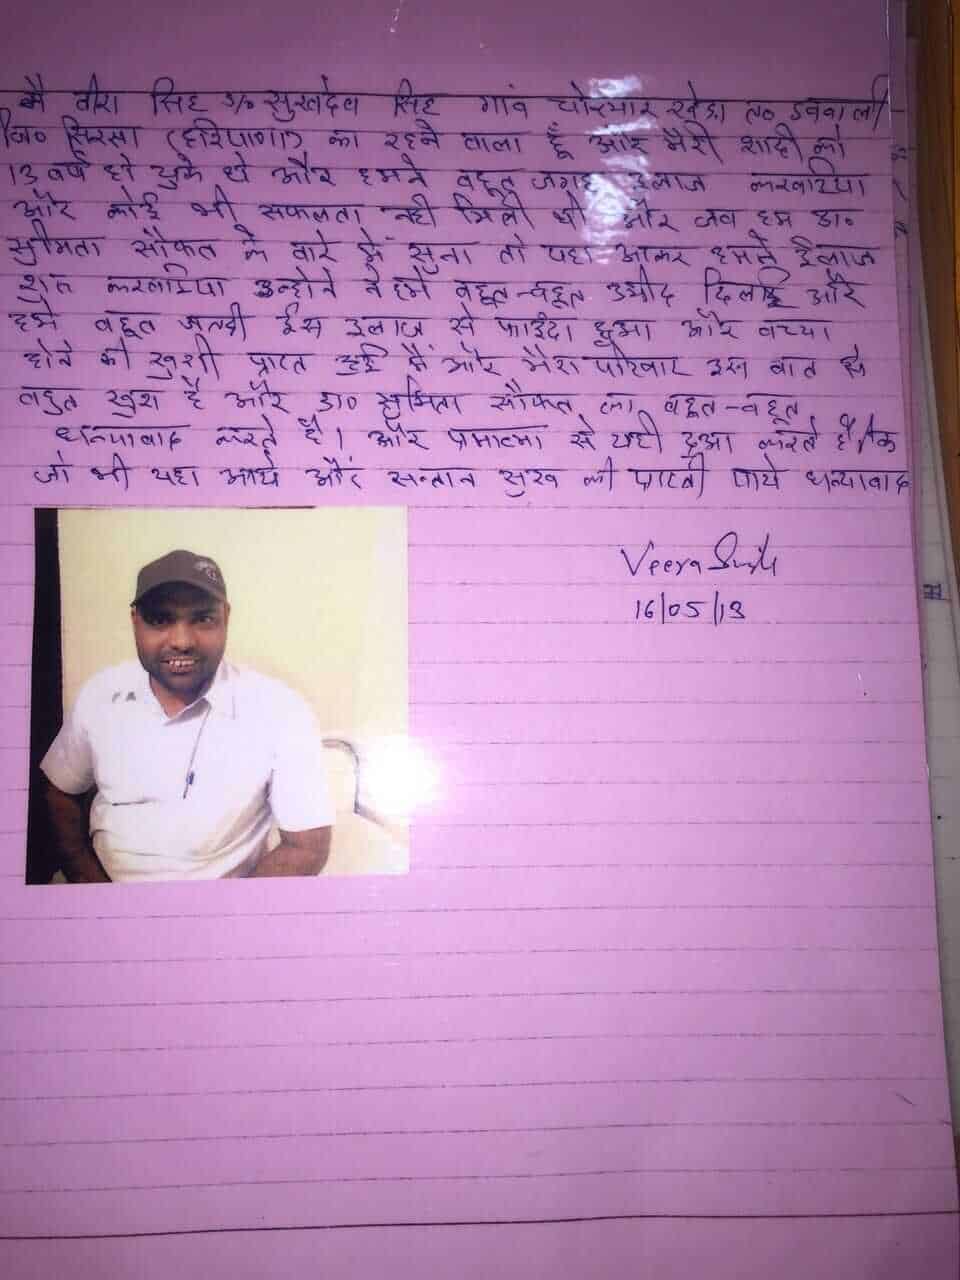 मै वीरा सिंह S/o सुखदेव सिंह गांव चोरमार खेड़ा त० डबवाली
जि० सिरसा (हरियाणा) का रहने वाला हूँ और मेरी शादी को
13 वर्ष हो चुके थे और हमने बहुत जगह इलाज करवाया
और कोई भी सफलता नही मिली थी और जब हम डा०
सुमिता सौफत के बारे में सुना तो यहा आकर हमने ईलाज
शुरु करवाया उन्होने ने हमे बहुत-बहुत उमीद दिलाई और
हमे बहुत जल्दी ईस इलाज से फाईदा हुआ और बच्चा
होने की खुशी प्रापत हुई मैं और मेरा परिवार इस बात से
बहुत खुश है और डा० सुमिता सौफत का बहूत-बहूत
धन्यावाद करते है। और प्रमात्मा से यही दुआ करते है कि
जो भी यहा आये और सन्तान सुख की प्राप्ती पाये धन्यावाद
Veera Singh
16/05/13